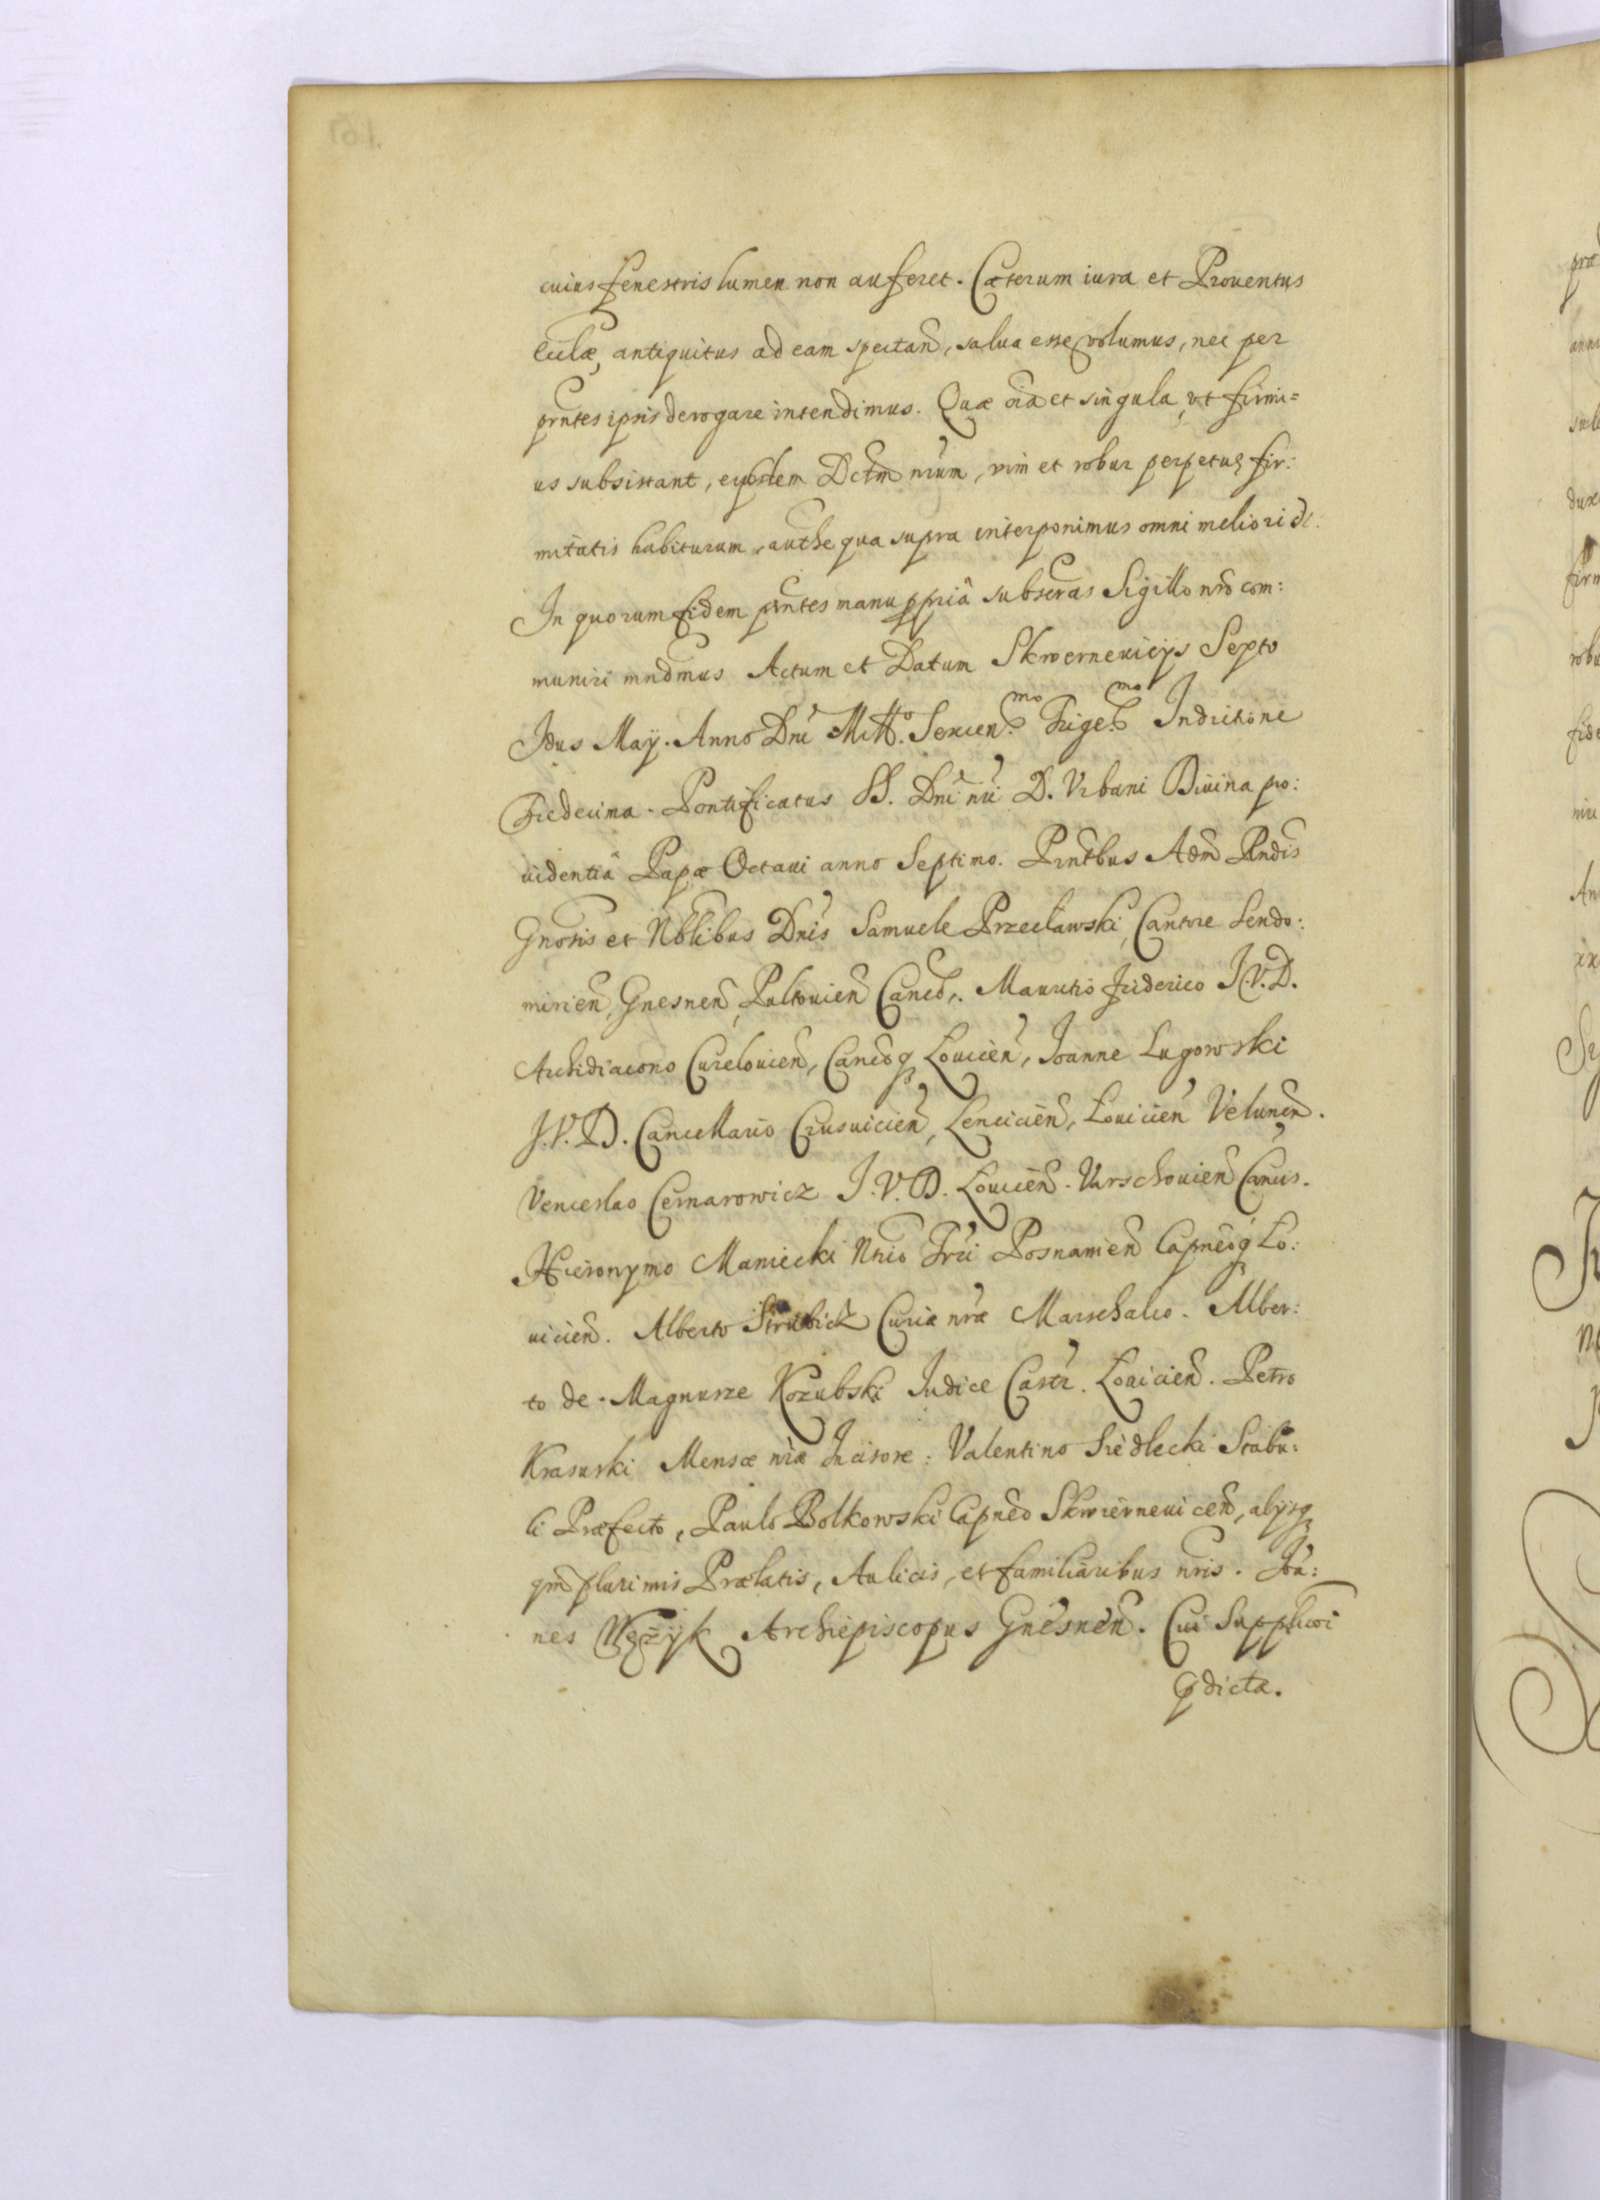 cuius fenestris lumen non auferet. Cæterum iura et Prouentus
Ecclæ, antiquitus ad eam spectan, salua esse volumus, nec per
pntes ipsis derogare intendimus. Quæ oia et singula, vt firmi=
us subsistant, eisdem Dctm nrum, vim et robur perpetuæ fir:
mitatis habiturum, authe qua supra interponimus omni meliori
In quorum fidem pntes manu ppria subscras Sigillo nro com:
muniri mndmus Actum et Datum Skwerneuicijs Septo
Idus Maij. Anno Dni Millo. Sexcen.mo Trige.mo Indictione
Tredecima. Pontificatus SS. Dni nri D. Vrbani Diuina pro:
uidentia Papæ Octaui anno Septimo. Prntbus Adm Rndis
Gnosis et Nblibus Dnis Samuele Przecławski, Cantore Sendo:
mirien, Gnesnen, Pultouien Canco. Mauritio Friderico J.V.D.
Archidiacono Curelouien, Cancoq Louicien, Joanne Lugowski
J.V.D. Cancellario Crusuicien, Lencicien, Louicien Velunen.
Venceslao Cernarowicz J.V.D. Louicien. Varschouien Cancis.
Hieronymo Maniecki Ntrio Trii Posnanien Capneoq Lo:
uicien. Alberto Strubicz Curiæ nræ Marschalco. Alber:
to de Magnusze Kozubski Judice Castr. Louicien. Petro
Krasuski Mensæ nræ Incisore: Valentino Siedlecki Stabu:
li Præfecto, Paulo Bolkowski Capneo Skwierneuicen, alijsq
qm plurimis Prælatis, Aulicis, et familiaribus nris. Joa:
nes Wężyk Archiepiscopus Gnesnen. Cui Supplicoi
pdictæ.